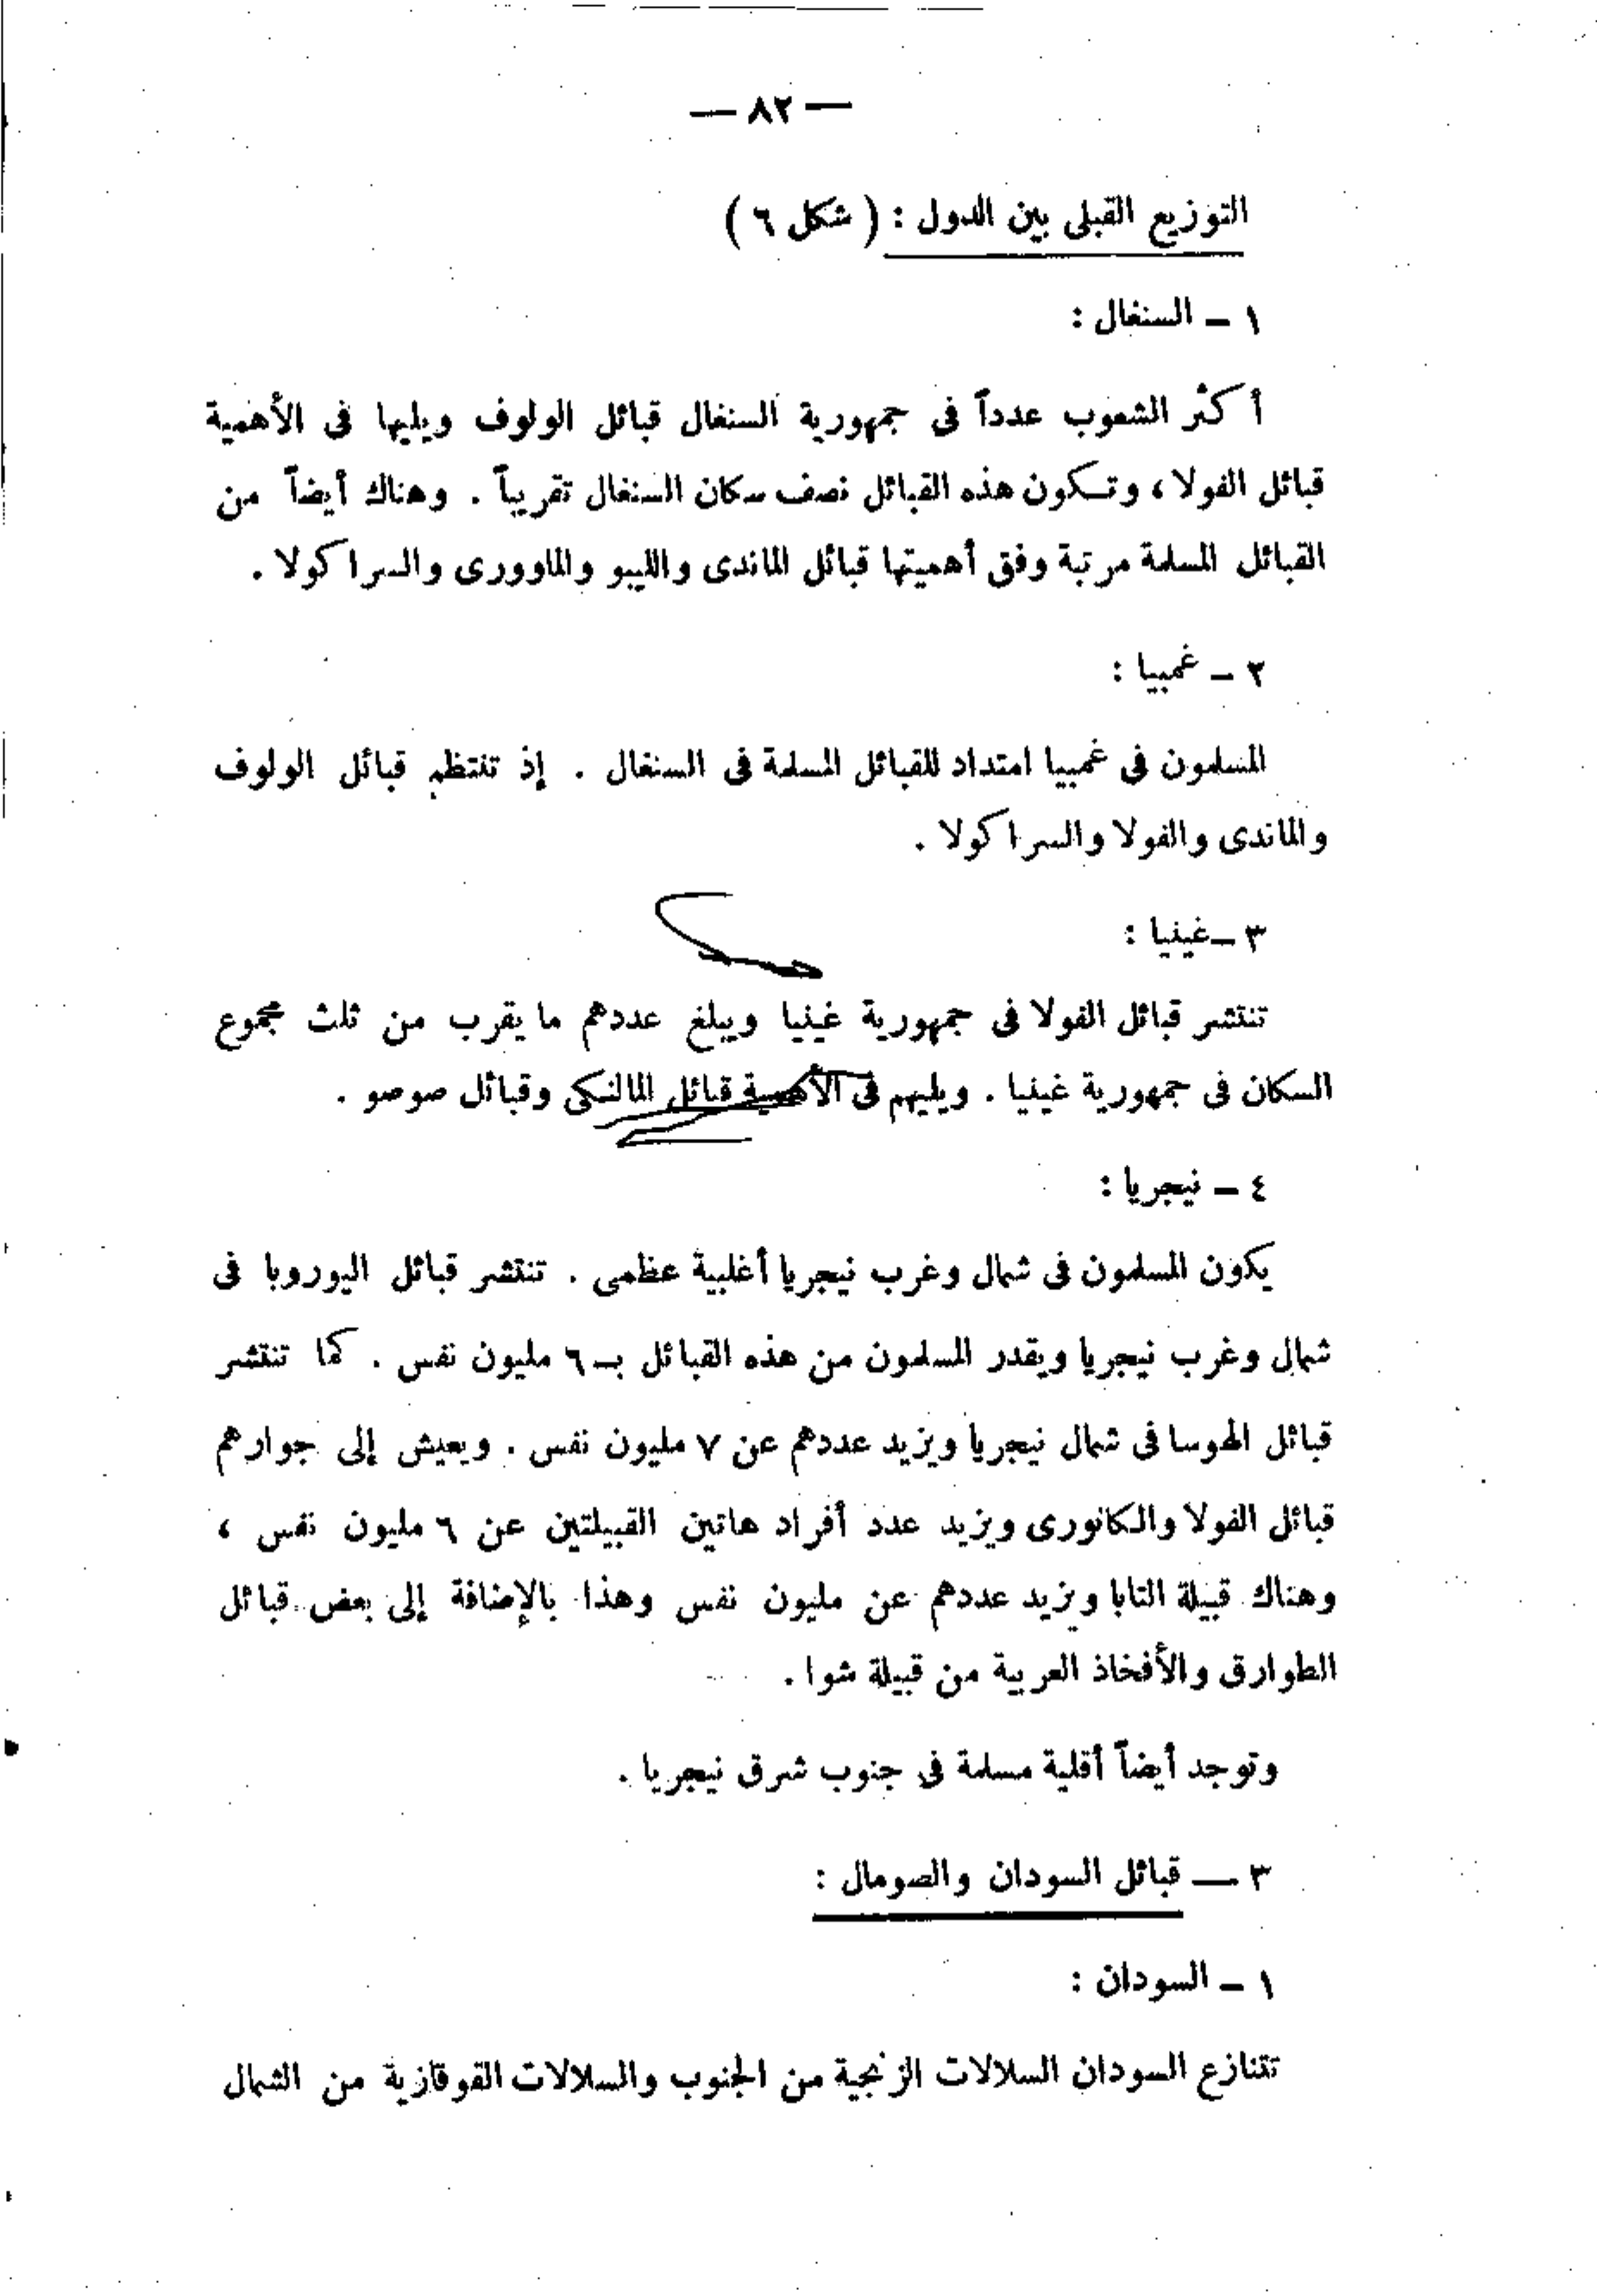 — ٨٢ —
التوزيع القبلى بين الدول : ( شكل ٦ )
١ – السنغال :
أكثر الشعوب عدداً فى جمهورية السنغال قبائل الولوف ويليها فى الأهمية
قبائل الفولا ، وتكون هذه القبائل نصف سكان السنغال تقريباً . وهناك أيضاً من
القبائل المسلمة مرتبة وفق أهميتها قبائل الماندى والليبو والماوورى والسراكولا .
٢ – غمبيا :
المسلمون فى غمبيا امتداد للقبائل المسلمة فى السنغال . إذ تنتظم قبائل الولوف
والماندى والفولا والسراكولا .
٣ – غينيا :
تنتشر قبائل الفولا فى جمهورية غينيا ويبلغ عددهم ما يقرب من ثلث مجموع
السكان فى جمهورية غينيا . ويليهم فى الأهمية قبائل المالنكى وقبائل صوصو .
٤ – نيجريا :
يكون المسلمون فى شمال وغرب نيجريا أغلبية عظمى . تنتشر قبائل اليوروبا فى
شمال وغرب نيجريا ويقدر المسلمون من هذه القبائل بـ ٦ مليون نفس . كما تنتشر
قبائل الهوسا فى شمال نيجريا ويزيد عددهم عن ٧ مليون نفس . ويعيش إلى جوارهم
قبائل الفولا والكانورى ويزيد عدد أفراد هاتين القبيلتين عن ٦ مليون نفس ،
وهناك قبيلة التابا ويزيد عددهم عن مليون نفس وهذا بالإضافة إلى بعض قبائل
الطوارق والأفخاذ العربية من قبيلة شوا .
وتوجد أيضاً أقلية مسلمة فى جنوب شرق نيجريا .
٣ — قبائل السودان والصومال :
١ – السودان :
تتنازع السودان السلالات الزنجية من الجنوب والسلالات القوقازية من الشمال